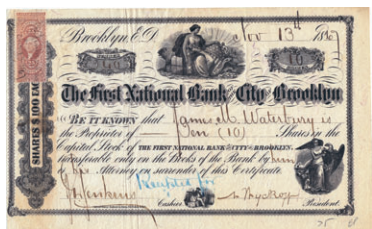 Brooklyn, E.D. Nov 13th 1867
10
The First National Bank of the City of Brooklyn
SHARES $100 EACH
BE IT KNOWN that James M. Waterbury is
the Proprietor of Ten (10) Shares in the
Capital Stock of THE FIRST NATIONAL BANK OF THE CITY OF BROOKLYN,
transferable only on the Books of the Bank by him
or his Attorney on surrender of this Certificate.
Receipted for
Cashier President.